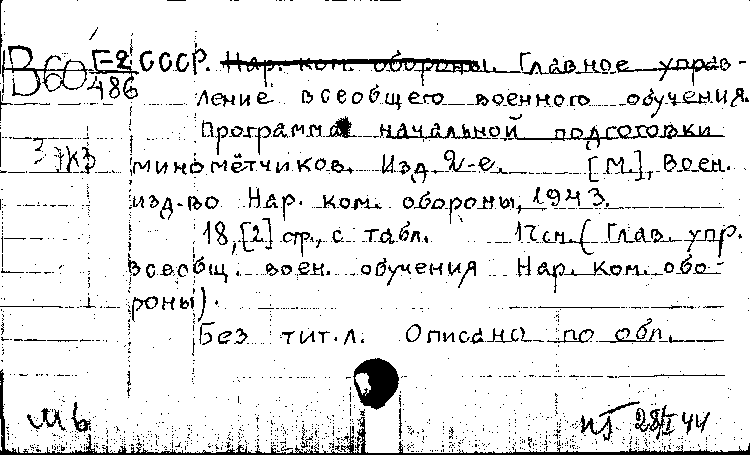 В60 Г-2/486 СССР. Нар. ком. обороны. Главное управ-
ление всеобщего военного обучения.
Программа начальной подготовки
3 экз минометчиков. Изд. 2-е. [М.], Воен.
изд-во Нар. ком. обороны, 1943.
18, [2] стр., с табл. 17 см. (Глав. упр.
всеобщ. воен. обучения Нар. ком. обо-
роны).
Без тит. л. Описано по обл.
28/I 44